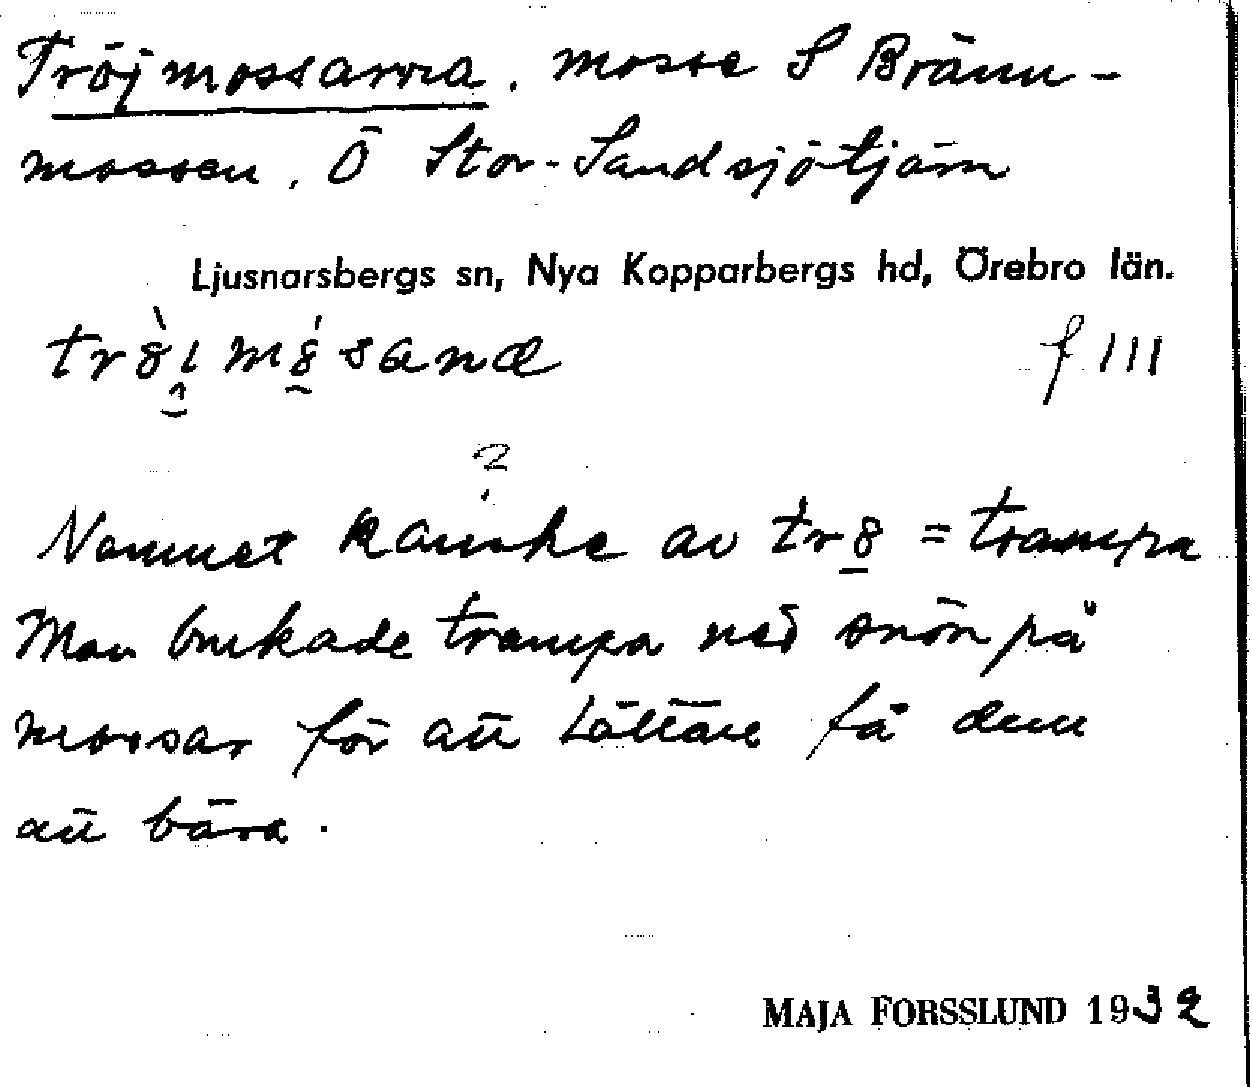 Tröjmossarna, mosse S Bränn-
mossen, Ö Stor-Sandsjötjärn
Ljusnarsbergs sn, Nya Kopparbergs hd, Örebro län.
f III
?
Namnet kanske av tr8 = trampa
Man brukade trampa ned snön på
mossar för att lättare få dem
att bära.
MAJA FORSSLUND 1932